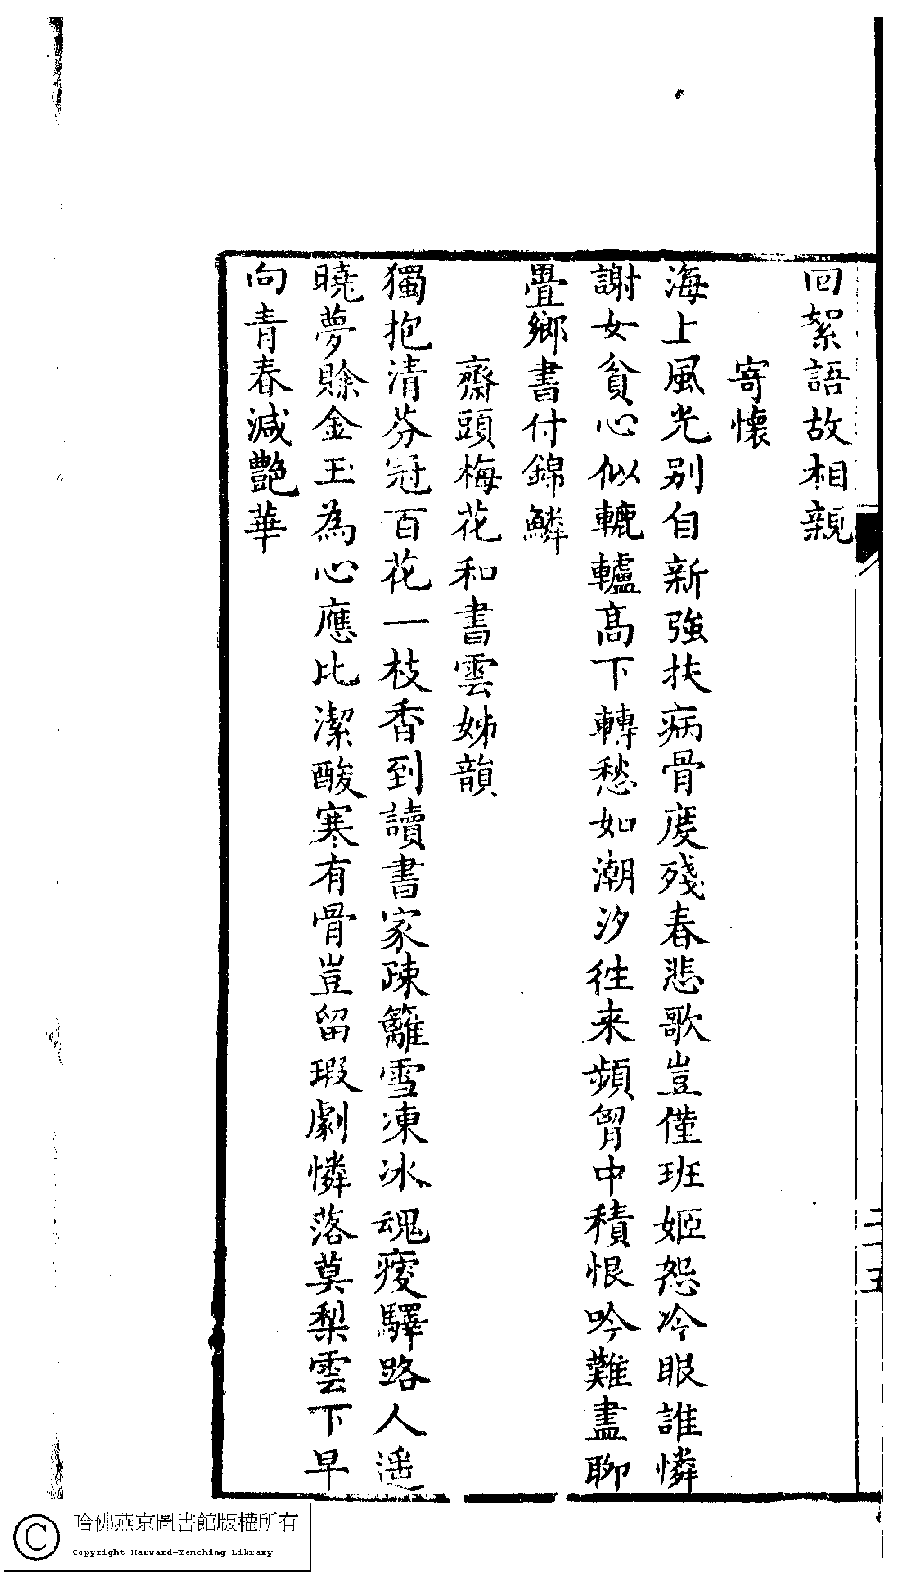 回絮語故相親
寄懷
海上風光別自新強扶病骨度殘春悲歌豈僅班姬怨冷眼誰憐
謝女貧心似轆轤高下轉愁如潮汐往来頻胷中積恨吟難盡聊
疊鄉書付錦鱗
齋頭梅花和書雲姊韻
獨抱清芬冠百花一枝香到讀書家疎籬雪凍冰魂瘦驛路人遥
曉夢賒金玉為心應比潔酸寒有骨豈留瑕劇憐落莫梨雲下早
向青春減艷華
二十五
哈佛燕京圖書館版權所有
Copyright Harvard-Yenching Library